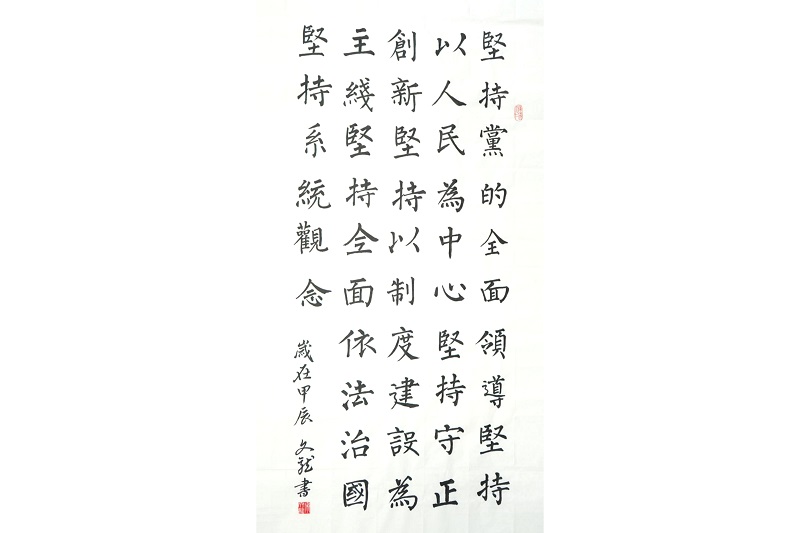 堅持黨的全面領導堅持
以人民為中心堅持守正
創新堅持以制度建設為
主綫堅持全面依法治國
堅持系統觀念
歲在甲辰 文龍書